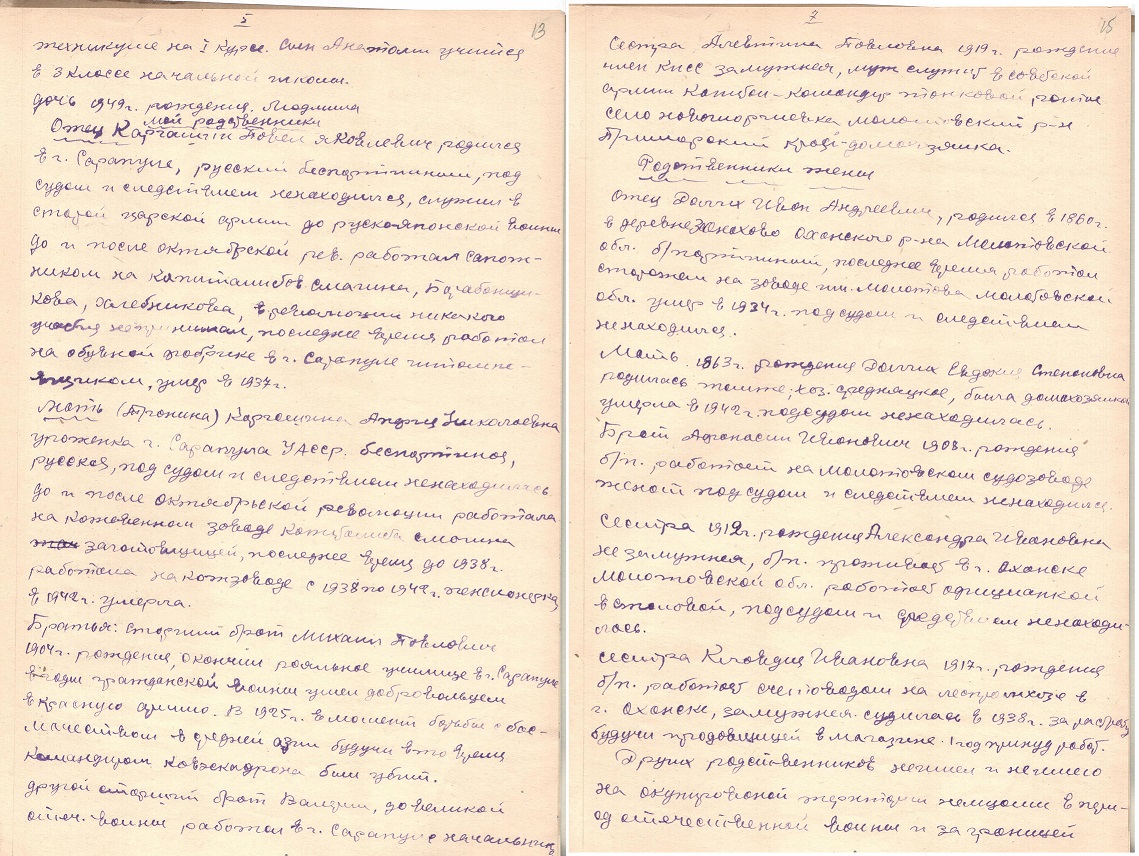 5
13
техникуме на I курсе. Сын Анатолий учится
в 3 классе начальной школы.
дочь 1949г. рождения Людмила
мои родственники
Отец Каргашин Павел яковлевич родился
в г. Сарапуле, русский беспартийный, под
судом и следствием ненаходился, служил в
старой царской армии до рускояпонской войны
до и после октябрской рев. работал сапож-
ником на капиталистов смагина, Барабанщи-
кова, хлебникова, в революции никакого
участия непринимал, последнее время работал
на обувной фабрике в г. Сарапуле
умер в 1937г.
Мать (Тронина) Каргашина Николаевна
уроженка г. Сарапула УАССР. беспартийная,
русская, под судом и следствием ненаходилась
до и после октябрьской революции работала
на кожевенном заводе смагина
заготовщицей, последнее время до 1938г.
работала на кожзаводе с 1938 по 1942г. пенсионерка
в 1942г. умерла.
Братья: старший брат Михаил Павлович
1904г. рождения, окончил реальное училище в г. Сарапуле
в годы гражданской войны ушел добровольцем
в Красную армию. В 1925г. в момент борьбы с бас-
мачеством в средней азии будучи в то время
командиром Кавэскадрона был убит.
другой старший брат Валерий, до великой
отеч. войны работал в г. Сарапуле начальник
7
15
Сестра Алевтина Павловна 1919г. рождения
член КПСС замужняя, муж служит в советской
армии Капитан - командир танковой роты
село молотовский р-н
Приморский край - домохозяйка.
Родственники жены
Отец Долгих Иван Андреевич, родился в 1860г.
в деревне Оханского р-на Молотовской
обл. б/партийный, последнее время работал
сторожем на заводе им. Молотова Молотовской
обл. умер в 1934г. под судом и следствием
ненаходился.
Мать 1863г. рождения Долгих Евдокия Степановна
родилась тамже; хоз. середняцкое, была домохозяйка
умерла в 1942г. под судом ненаходилась.
Брат Афонасий Иванович 1908г. рождения
б/п. работает на молотовском судозаводе
женат под судом и следствием ненаходился.
Сестра 1912г. рождения Александра Ивановна
не замужняя, б/п. проживает в г. Оханске
Молотовской обл. работает официанкой
в столовой, под судом и следствием ненаходи-
лась.
Сестра Клавдия Ивановна 1917г. рождения
б/п. работает счетоводом на леспромхозе в
г. Оханске, замужняя. судилась в 1938г. за растрату
будучи продавщицей в магазине. 1 год принуд работ.
Других родственников неимел и неимею
на окупированой территории немцами в пери-
од отечественной войны и за границей